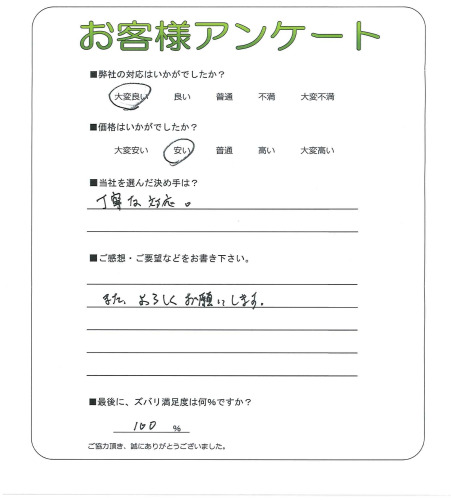 お客様アンケート
■弊社の対応はいかがでしたか？
大変良い 良い 普通 不満 大変不満
■価格はいかがでしたか？
大変安い 安い 普通 高い 大変高い
■当社を選んだ決め手は？
丁寧な対応。
■ご感想・ご要望などをお書き下さい。
また、よろしくお願いします。
■最後に、ズバリ満足度は何%ですか？
100 %
ご協力頂き、誠にありがとうございました。